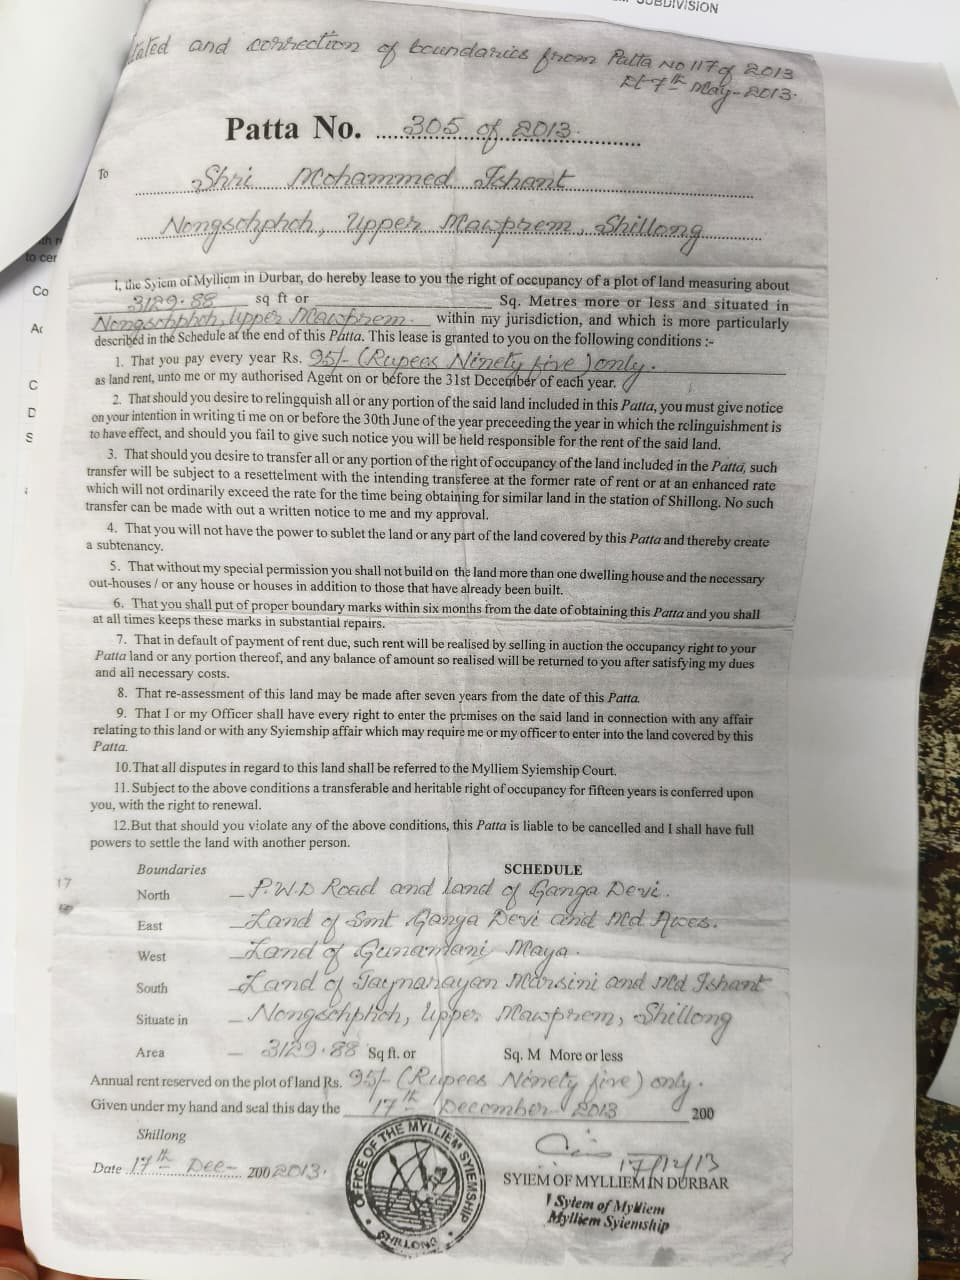 SUBDIVISION
and correction of boundaries from Patta No 117 of 2013
Dt 7th May-2013.
Patta No. 305 of 2013.
To
Shri Mohammed Ishant
Upper Mawprem, Shillong
to cer
Co
I, the Syiem of Mylliem in Durbar, do hereby lease to you the right of occupancy of a plot of land measuring about
3129.88 sq ft or Sq. Metres more or less and situated in
Upper Mawprem. within my jurisdiction, and which is more particularly
described in the Schedule at the end of this Patta. This lease is granted to you on the following conditions :-
1. That you pay every year Rs. 95/- (Rupees Ninety five) only.
as land rent, unto me or my authorised Agent on or before the 31st December of each year.
2. That should you desire to relingquish all or any portion of the said land included in this Patta, you must give notice
on your intention in writing ti me on or before the 30th June of the year preceeding the year in which the relinguishment is
to have effect, and should you fail to give such notice you will be held responsible for the rent of the said land.
3. That should you desire to transfer all or any portion of the right of occupancy of the land included in the Patta, such
transfer will be subject to a resettelment with the intending transferee at the former rate of rent or at an enhanced rate
which will not ordinarily exceed the rate for the time being obtaining for similar land in the station of Shillong. No such
transfer can be made with out a written notice to me and my approval.
4. That you will not have the power to sublet the land or any part of the land covered by this Patta and thereby create
a subtenancy.
5. That without my special permission you shall not build on the land more than one dwelling house and the necessary
out-houses / or any house or houses in addition to those that have already been built.
6. That you shall put of proper boundary marks within six months from the date of obtaining this Patta and you shall
at all times keeps these marks in substantial repairs.
7. That in default of payment of rent due, such rent will be realised by selling in auction the occupancy right to your
Patta land or any portion thereof, and any balance of amount so realised will be returned to you after satisfying my dues
and all necessary costs.
8. That re-assessment of this land may be made after seven years from the date of this Patta.
9. That I or my Officer shall have every right to enter the premises on the said land in connection with any affair
relating to this land or with any Syiemship affair which may require me or my officer to enter into the land covered by this
Patta.
10. That all disputes in regard to this land shall be referred to the Mylliem Syiemship Court.
11. Subject to the above conditions a transferable and heritable right of occupancy for fifteen years is conferred upon
you, with the right to renewal.
12. But that should you violate any of the above conditions, this Patta is liable to be cancelled and I shall have full
powers to settle the land with another person.
Boundaries SCHEDULE
17
North - P.W.D Road and land of Ganga Devi.
East - Land of Smt Ganga Devi and Md Awes.
West - Land of Gunamani Maya.
South - Land of Jaynarayan and Md Ishant
Situate in - Upper Mawprem, Shillong
Area - 3129.88 Sq ft. or Sq. M More or less
Annual rent reserved on the plot of land Rs. 95/- (Rupees Ninety five) only.
Given under my hand and seal this day the 17th December 2013 200
Shillong
Date 17th Dec- 200 2013.
OFFICE OF THE MYLLIEM SYIEMSHIP
SHILLONG
17/12/13
SYIEM OF MYLLIEM IN DURBAR
Syiem of Mylliem
Mylliem Syiemship